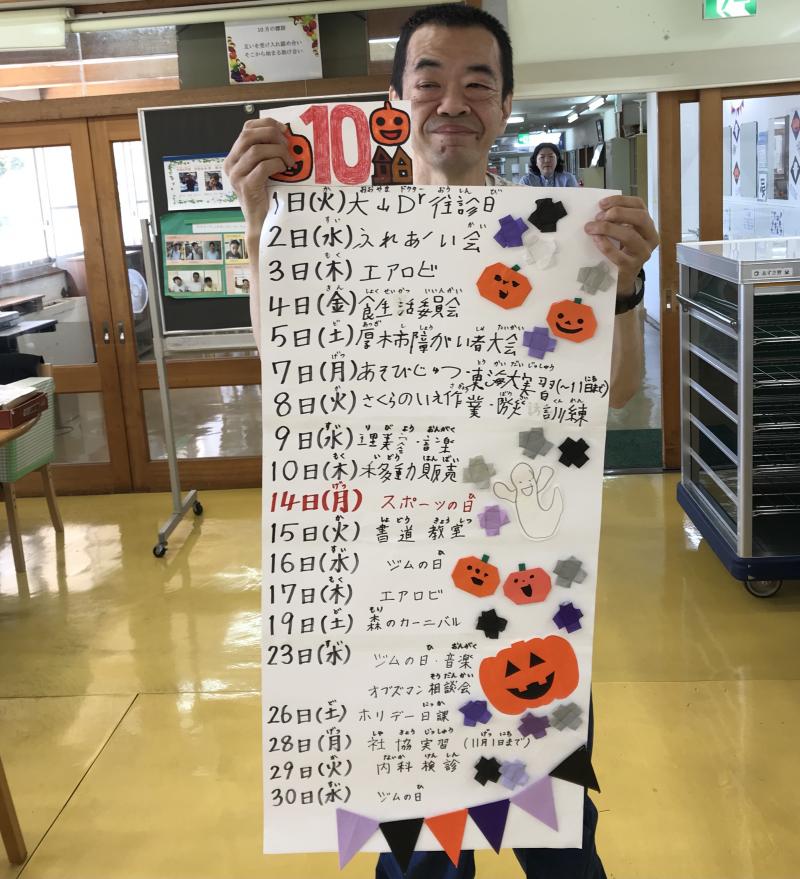 10月の標語
互いを受け入れ認め合い
そこから始まる助け合い
10
1日(火)大山Dr往診日
2日(水)ふれあい会
3日(木)エアロビ
4日(金)食生活委員会
5日(土)厚木市障がい者大会
7日(月)あそびじゅつ・東海大実習(〜11日まで)
8日(火)さくらのいえ作業・防災訓練
9日(水)理美容・音楽
10日(木)移動販売
14日(月)スポーツの日
15日(火)書道教室
16日(水)ジムの日
17日(木)エアロビ
19日(土)森のカーニバル
23日(水)ジムの日・音楽
オブズマン相談会
26日(土)ホリデー日課
28日(月)社協実習(11月1日まで)
29日(火)内科検診
30日(水)ジムの日